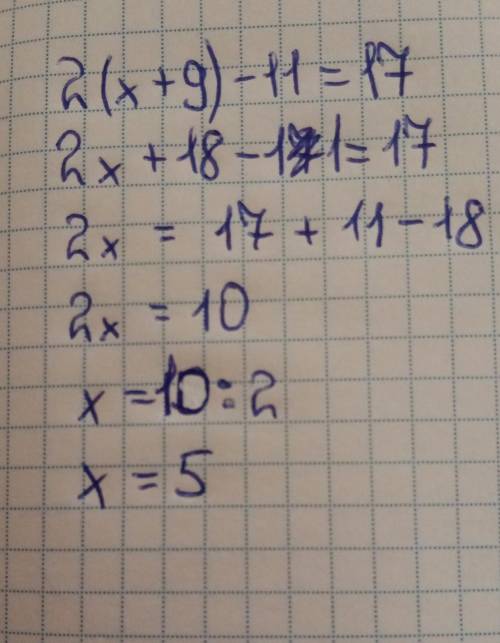 2(x+9)-11=17
2x+18-11=17
2x = 17+11-18
2x = 10
x = 10:2
x = 5